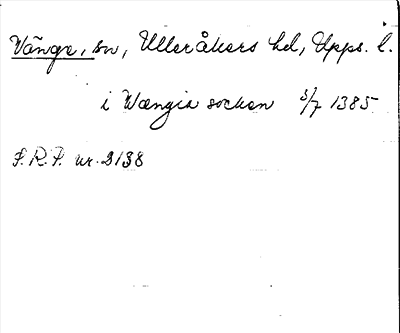 Vänge, sn, Ulleråkers hd, Upps. l.
i Wængia sochon 3/7 1385
S.R.P. nr. 2138